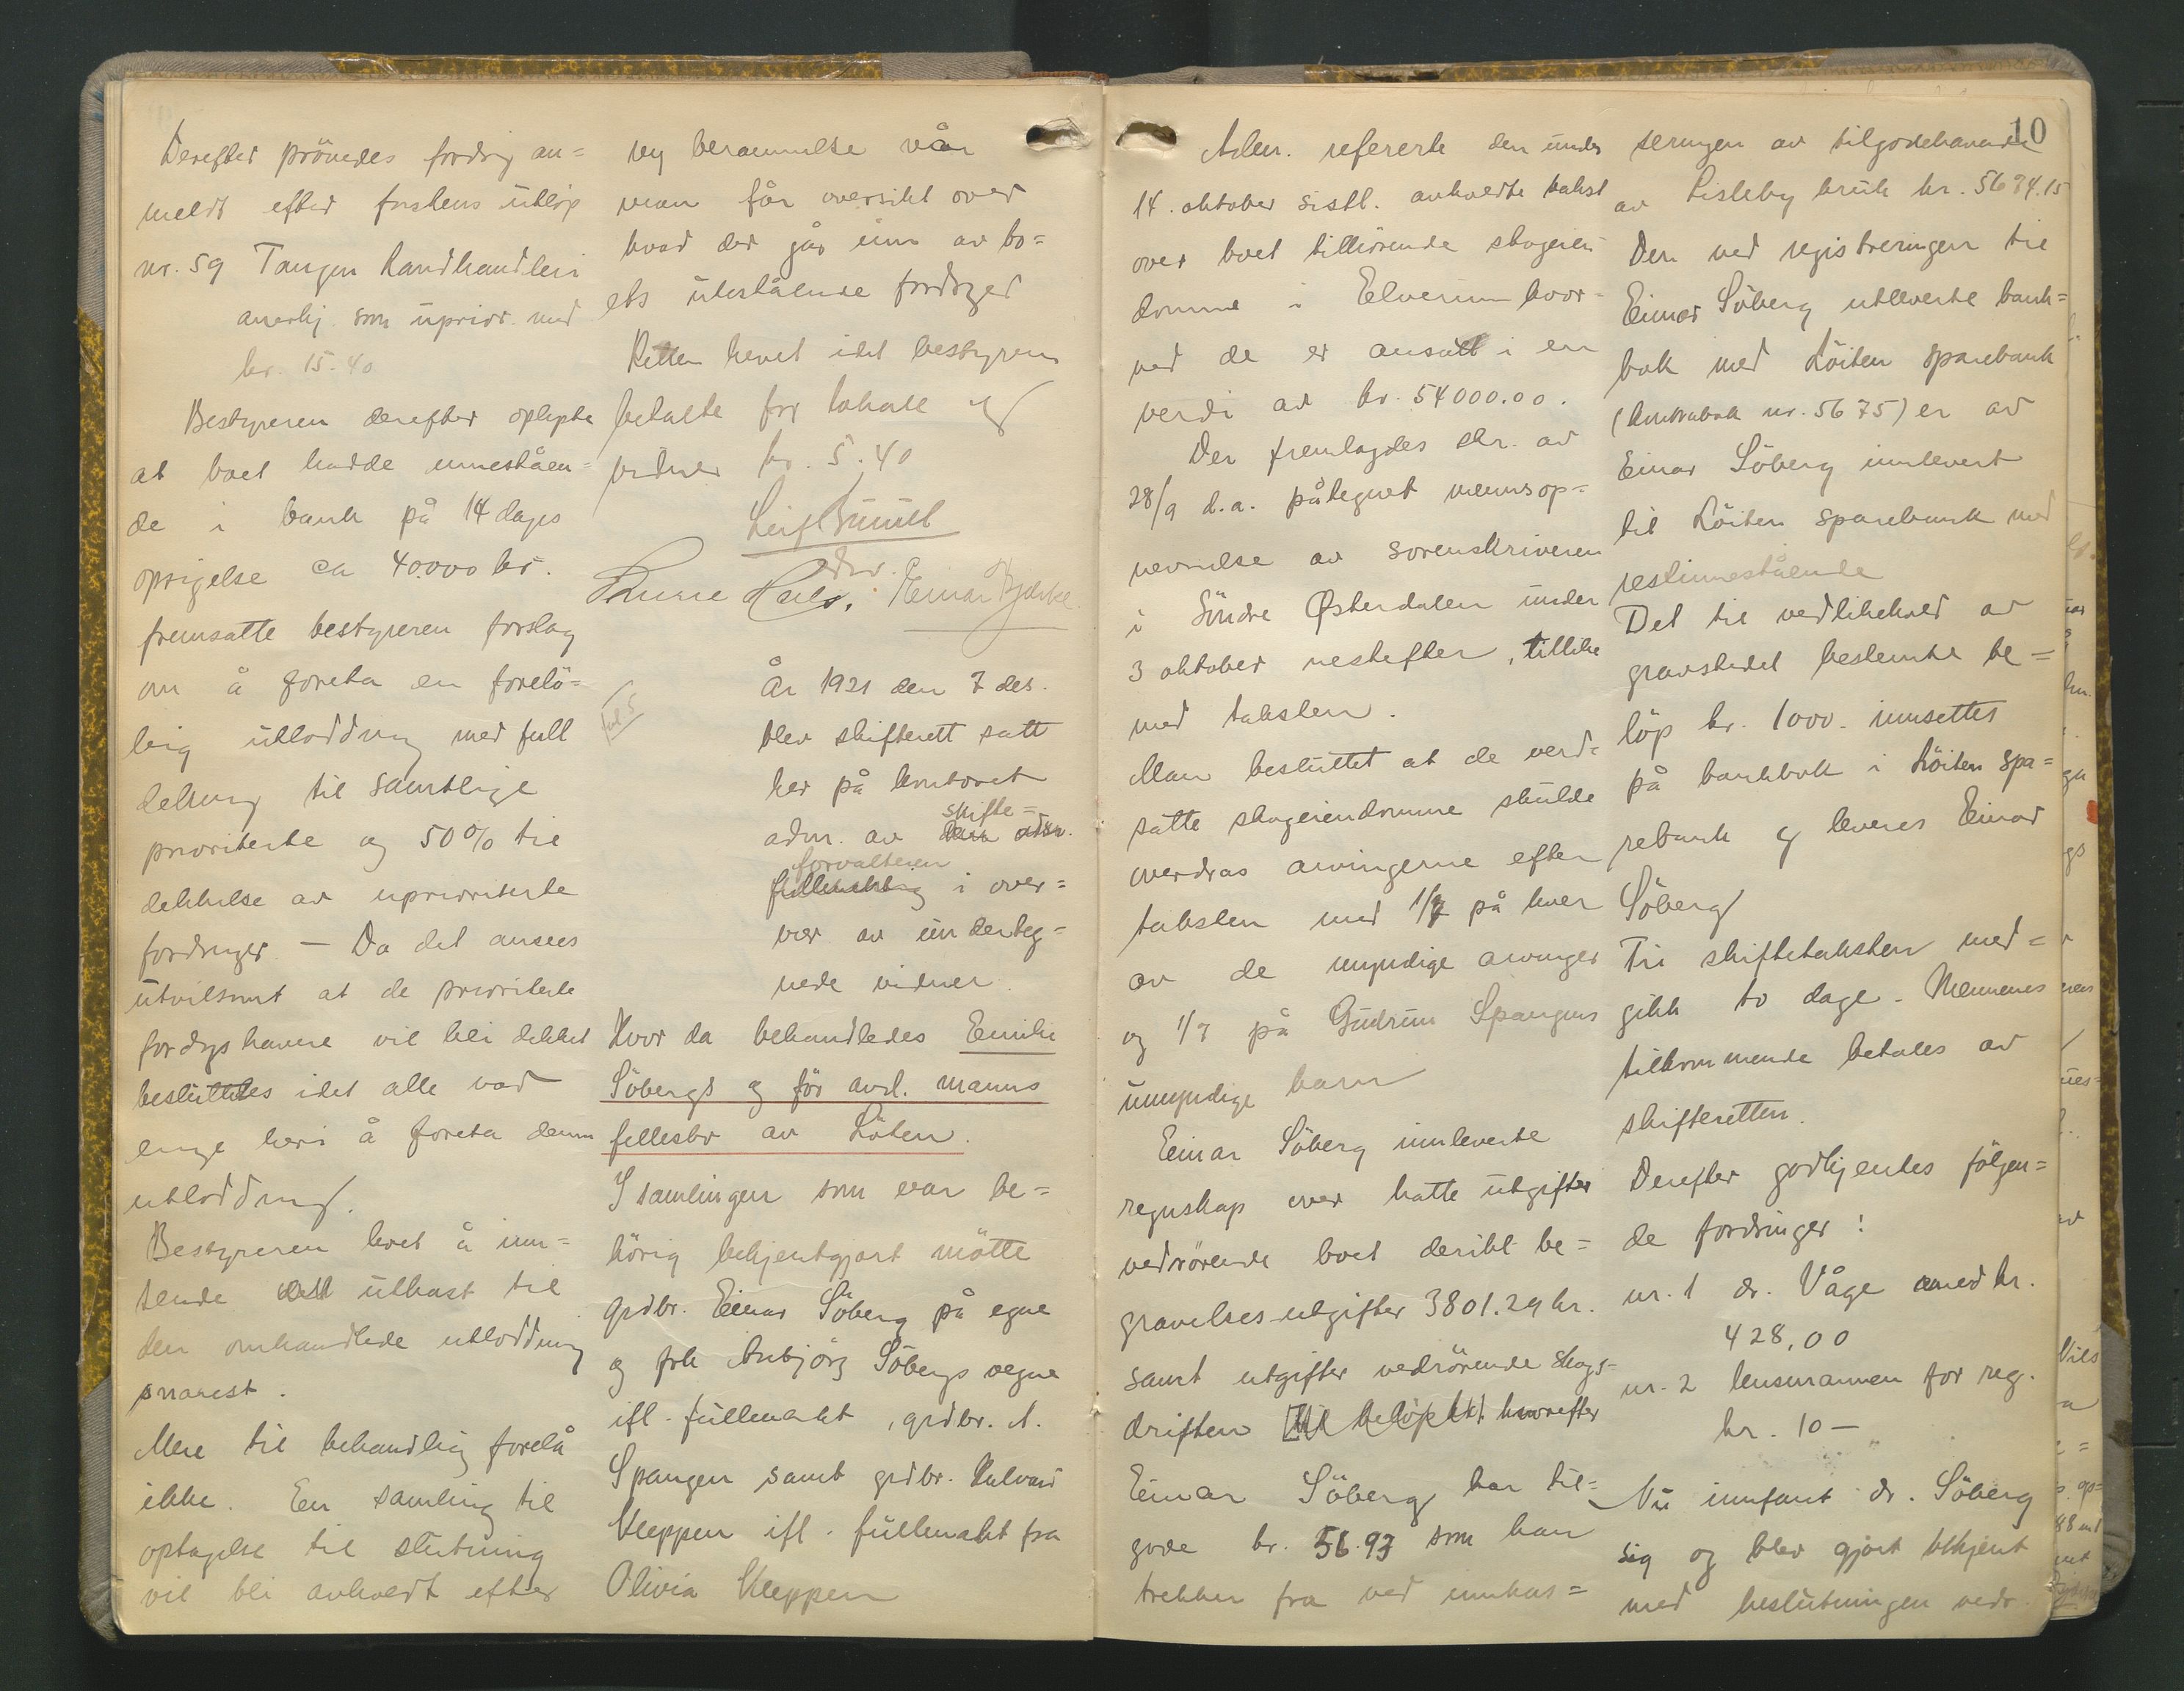 Derefter prövedes fordrg an=
meldt efter fristens utlöp
nr. 59 Tangen Landhandleri
anerkj. som uprior. med
kr. 15.40
Bestyreren derefter oplyste
at boet hadde inneståen=
de i bank på 14 dages
opsigelse ca 40.000 kr.
fremsatte bestyreren forslag
om å foreta en forelö=
big utloddning med full
dekning til samtlige
prioriterte og 50% til
dekkelse av uprioriterte
fordringer. – Da det ansees
utvilsomt at de prioriterte
fordrgshavere vil bli dekket
besluttedes idet alle var
enige heri å foreta denne
utloddning.
Bestyreren lovet å inn=
sende utkast til
den omhandlede utloddning
snarest.
Mere til behandling forelå
ikke. En samling til
optagelse til slutning
vil bli avholdt efter
ny berammelse når
man får oversikt over
hvad der går inn av bo=
ets utestående fordrger
Retten hevet idet bestyreren
betalte for lokale og
vidner kr. 5.40
År 1921 den 7 des.
blev skifterett satt
her på kontoret
adm. av skifte=
forvalteren
fullmektig i over=
vær av underteg=
nede vidner.
Hvor da behandledes Emilie
Söbergs og før avd. manns
fellesbo av Löten.
I samlingen som var be=
hörig bekjentgjort mötte
grdbr. Einar Söberg på egne
og frk Anbjörg Söbergs vegne
ifl. fullmakt, grdbr. A.
Spangen samt grdbr. Halvard
Kleppen ifl. fullmakt fra
Olivia Kleppen
10
Adm. refererte den under
14. oktober sistl. avholdte takst
over boet tilhörende skogeien
domme i Elverum hvor=
ved de er ansatt i en
verdi av kr. 54000.00.
Der fremlagdes skr. av
28/9 d.a. påtegnet mennsop=
nevnelse av sorenskriveren
i Söndre Østerdalen under
3 oktober nestefter, tillike
med taksten.
Man besluttet at de verd=
satte skogeiendomme skulde
overdras arvingerne efter
taksten med 1/7 på hver
av de myndige arvinger
og 1/7 på Gudrun Spangens
umyndige barn
Einar Söberg innleverte
regnskap over hatte utgifter
vedrörende boet deribl. be=
gravelses-utgifter 3801.29 kr.
samt utgifter vedrörende skogs=
driften hvorefter
Einar Söberg har til=
gode kr. 56.93 som han
trekker fra ved innkas=
seringen av tilgodehavende
av Lisleby bruk kr. 5674.15
Den ved registreringen til
Einar Söberg utleverte bank=
bok med Löiten sparebank
(kontrabok nr. 5675) er av
Einar Söberg innlevert
til Löiten sparebank med
restinnestående
Det til vedlikehold av
gravstedet bestemte be=
löp kr. 1000. innsettes
på bankbok i Löiten spa=
rebank og leveres Einar
Söberg
Til skiftetaksten med=
gikk to dage. Mennenes
tilkommende betales av
skifteretten.
Derefter godkjentes fölgen=
de fordringer:
nr. 1 dr. Våge med kr.
428,00
nr. 2 lensmannen for reg.
kr. 10 –
Nu innfant dr. Söberg
sig og blev gjort bekjent
med beslutningen vedr.